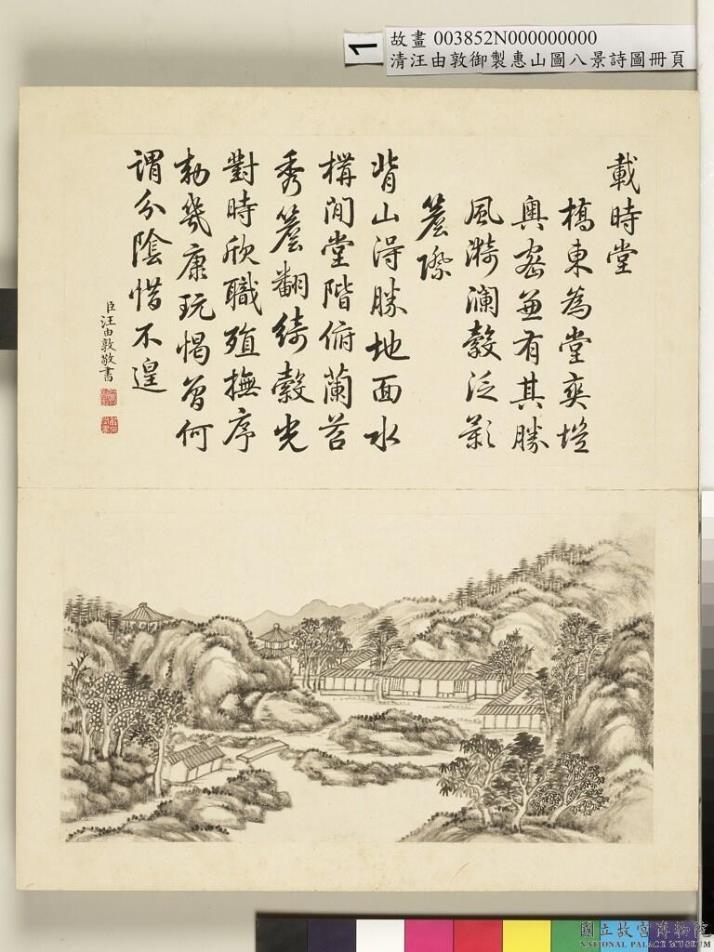 1
故畫 003852N000000000
清汪由敦御製惠山園八景詩圖冊頁
載時堂
橋東為堂爽塏
奧密並有其勝
風漪瀾縠泛影
簷際
背山得勝地面水
構閒堂階俯蘭苕
秀簷翻綺縠光
對時欣職殖撫序
勑幾康玩愒曾何
謂分陰惜不遑
臣汪由敦敬書
國立故宮博物院
NATIONAL PALACE MUSEUM